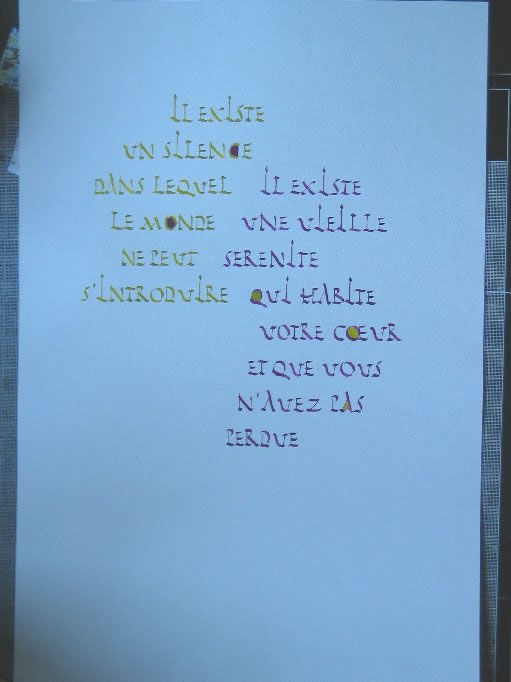 IL EXISTE
UN SILENCE
DANS LEQUEL
LE MONDE
NE PEUT
S'INTRODUIRE
IL EXISTE
UNE VIEILLE
SERENITE
QUI HABITE
VOTRE CŒUR
ET QUE VOUS
N'AVEZ PAS
PERDUE